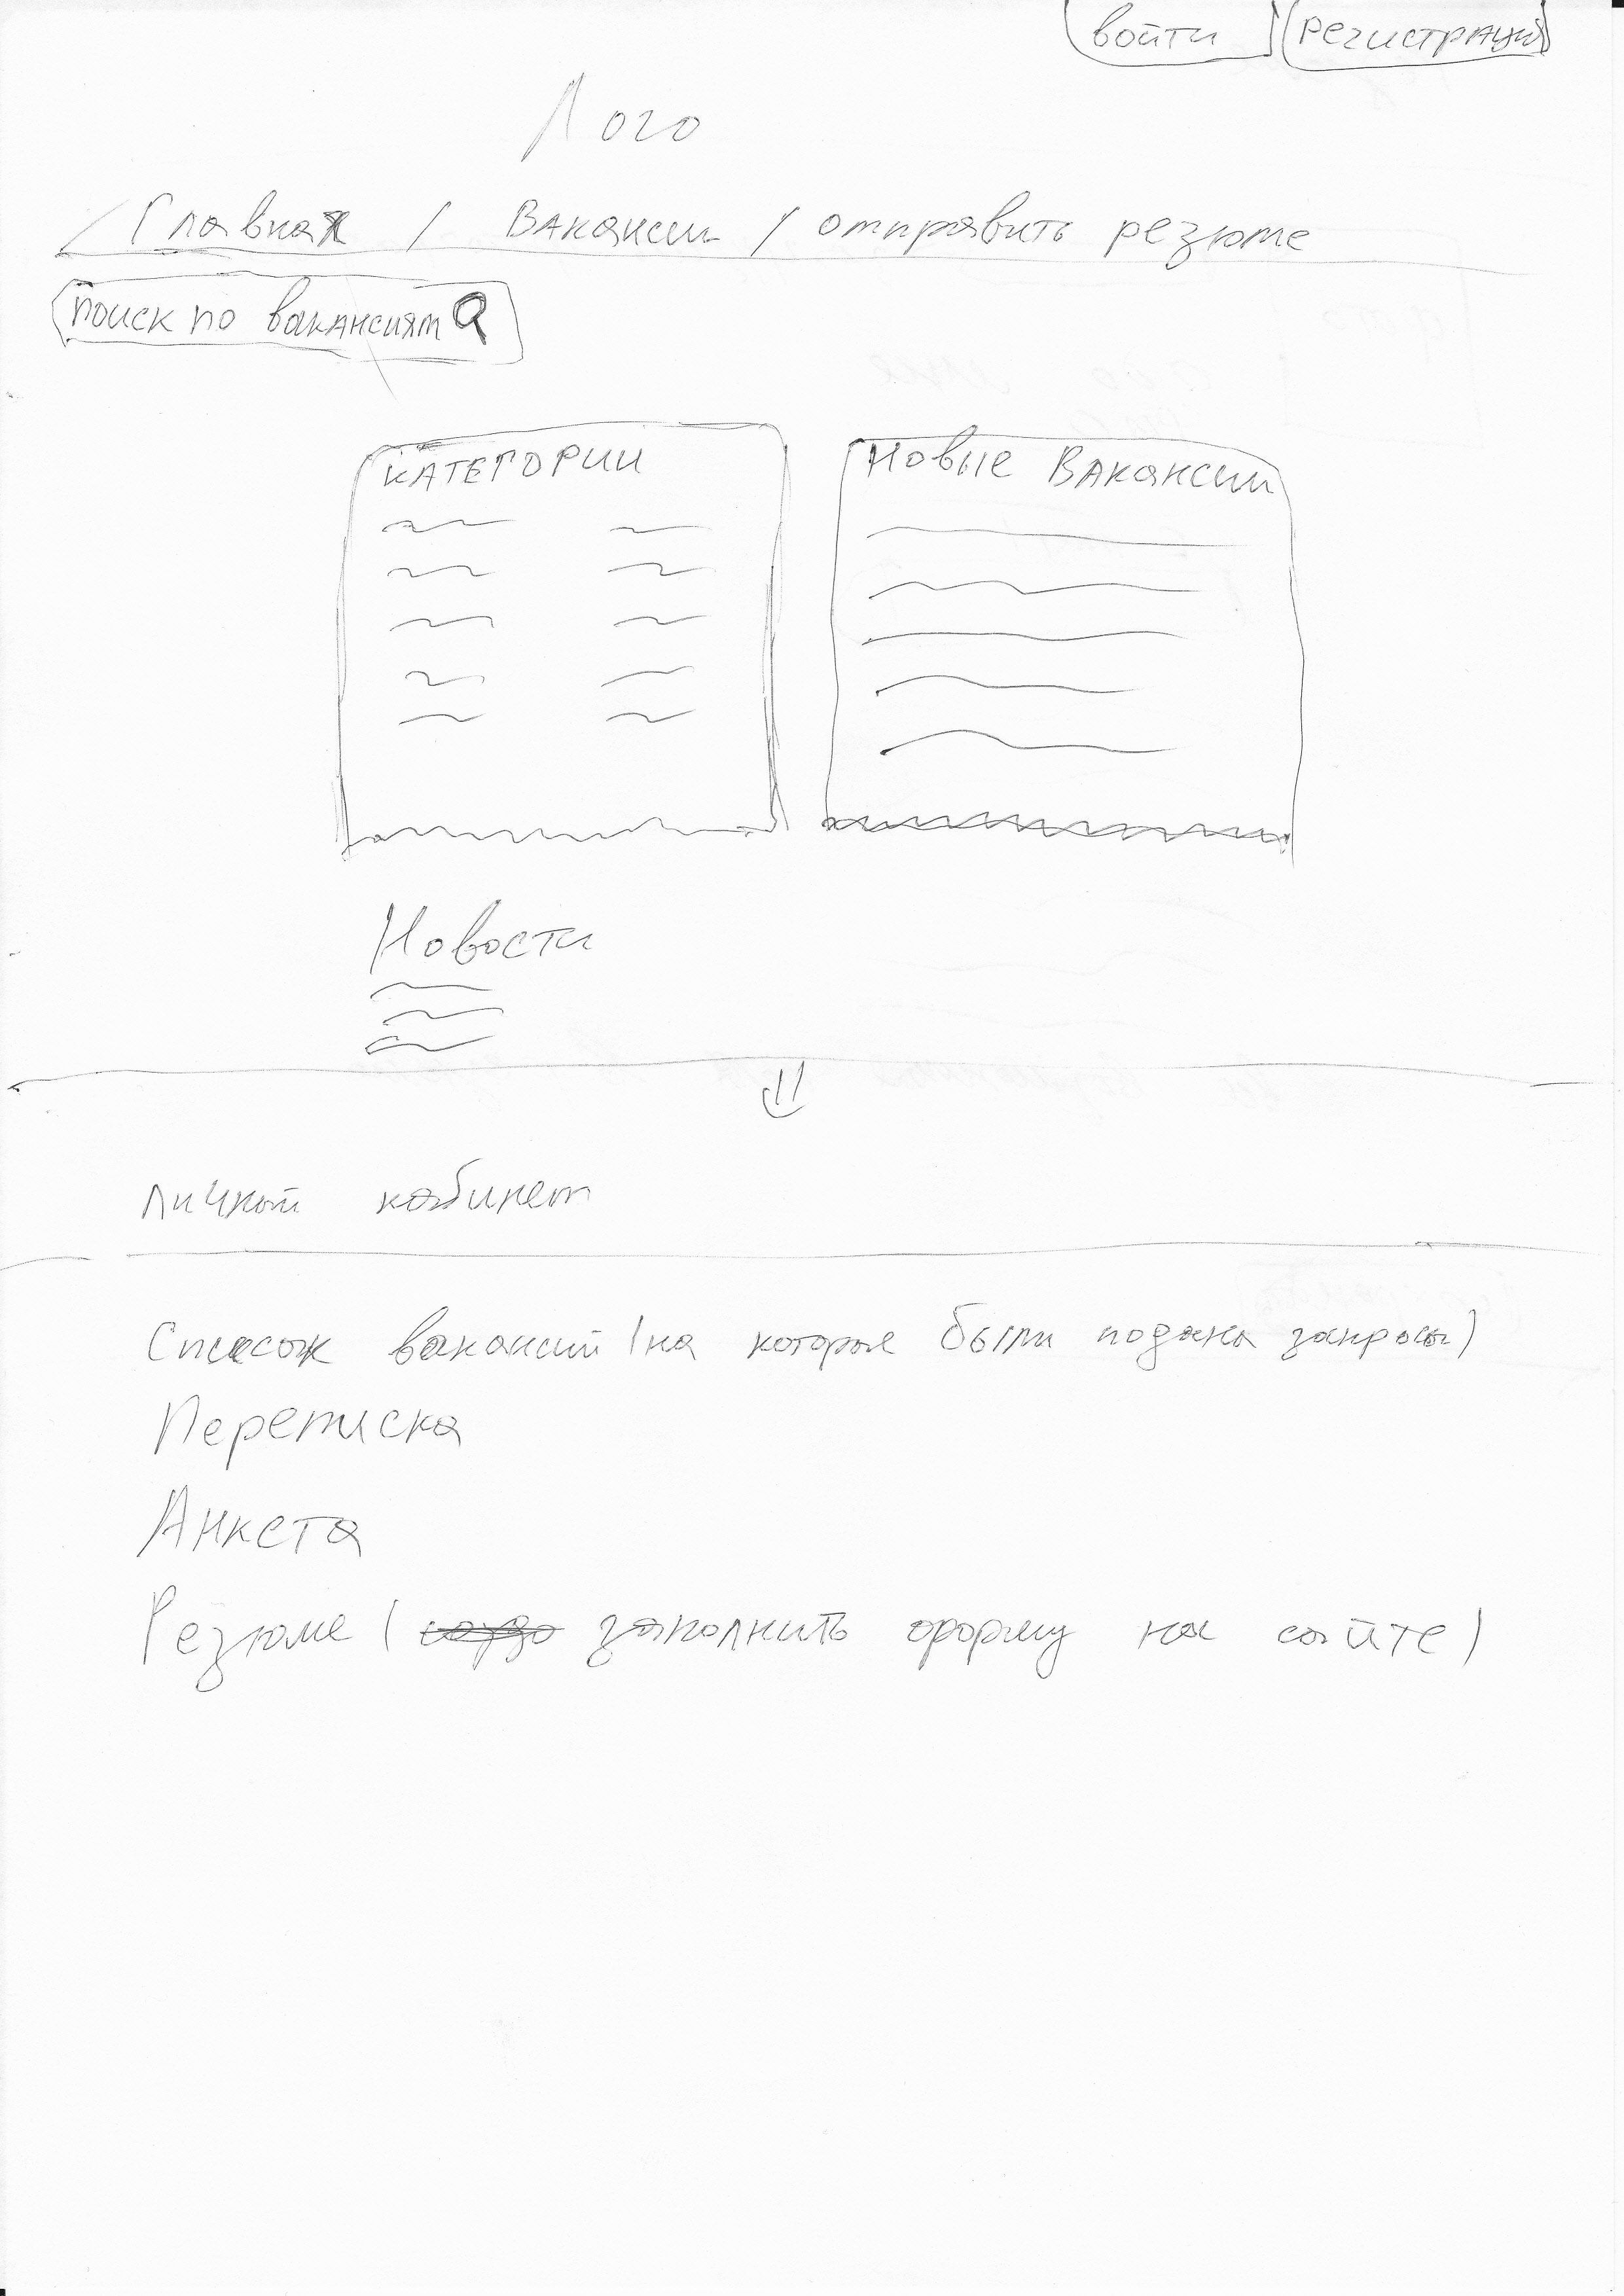 войти регистрация
Лого
Главная / Вакансии / отправить резюме
поиск по вакансиям
КАТЕГОРИИ
Новые Вакансии
Новости
личный кабинет
Список вакансий (на которые были поданы запросы)
Переписка
Анкета
Резюме ( заполнить форму на сайте)